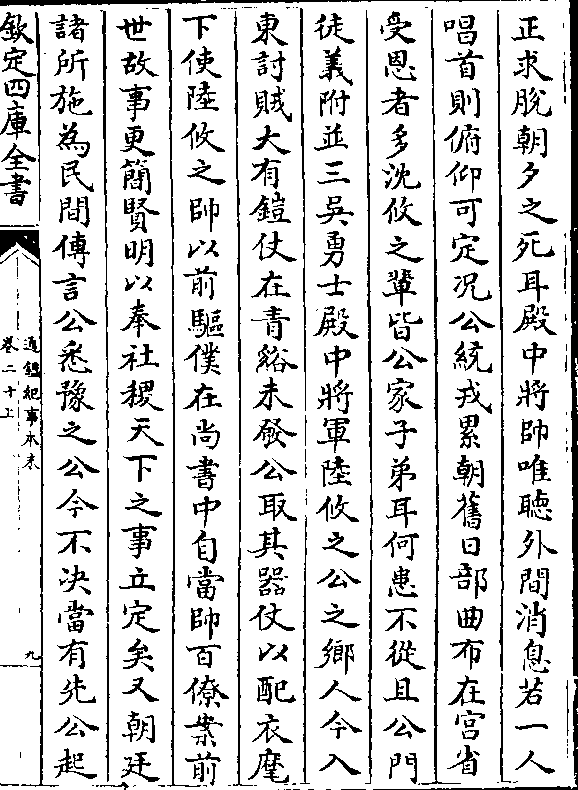 正求脫朝夕之死耳殿中將帥唯聽外間消息若一人
唱首則俯仰可定况公統戎累朝舊日部曲布在宫省
受恩者多沈攸之輩皆公家子弟耳何患不從且公門
徒義附並三吳勇士殿中將軍陸攸之公之鄉人今入
東討賊大有鎧仗在青谿未發公取其器仗以配衣麾
下使陸攸之帥以前驅僕在尚書中自當帥百僚案前
世故事更簡賢明以奉社稷天下之事立定矣又朝廷
諸所施為民間傳言公悉豫之公今不决當有先公起
欽定四庫全書
通鑑紀事本末
卷二十上
九